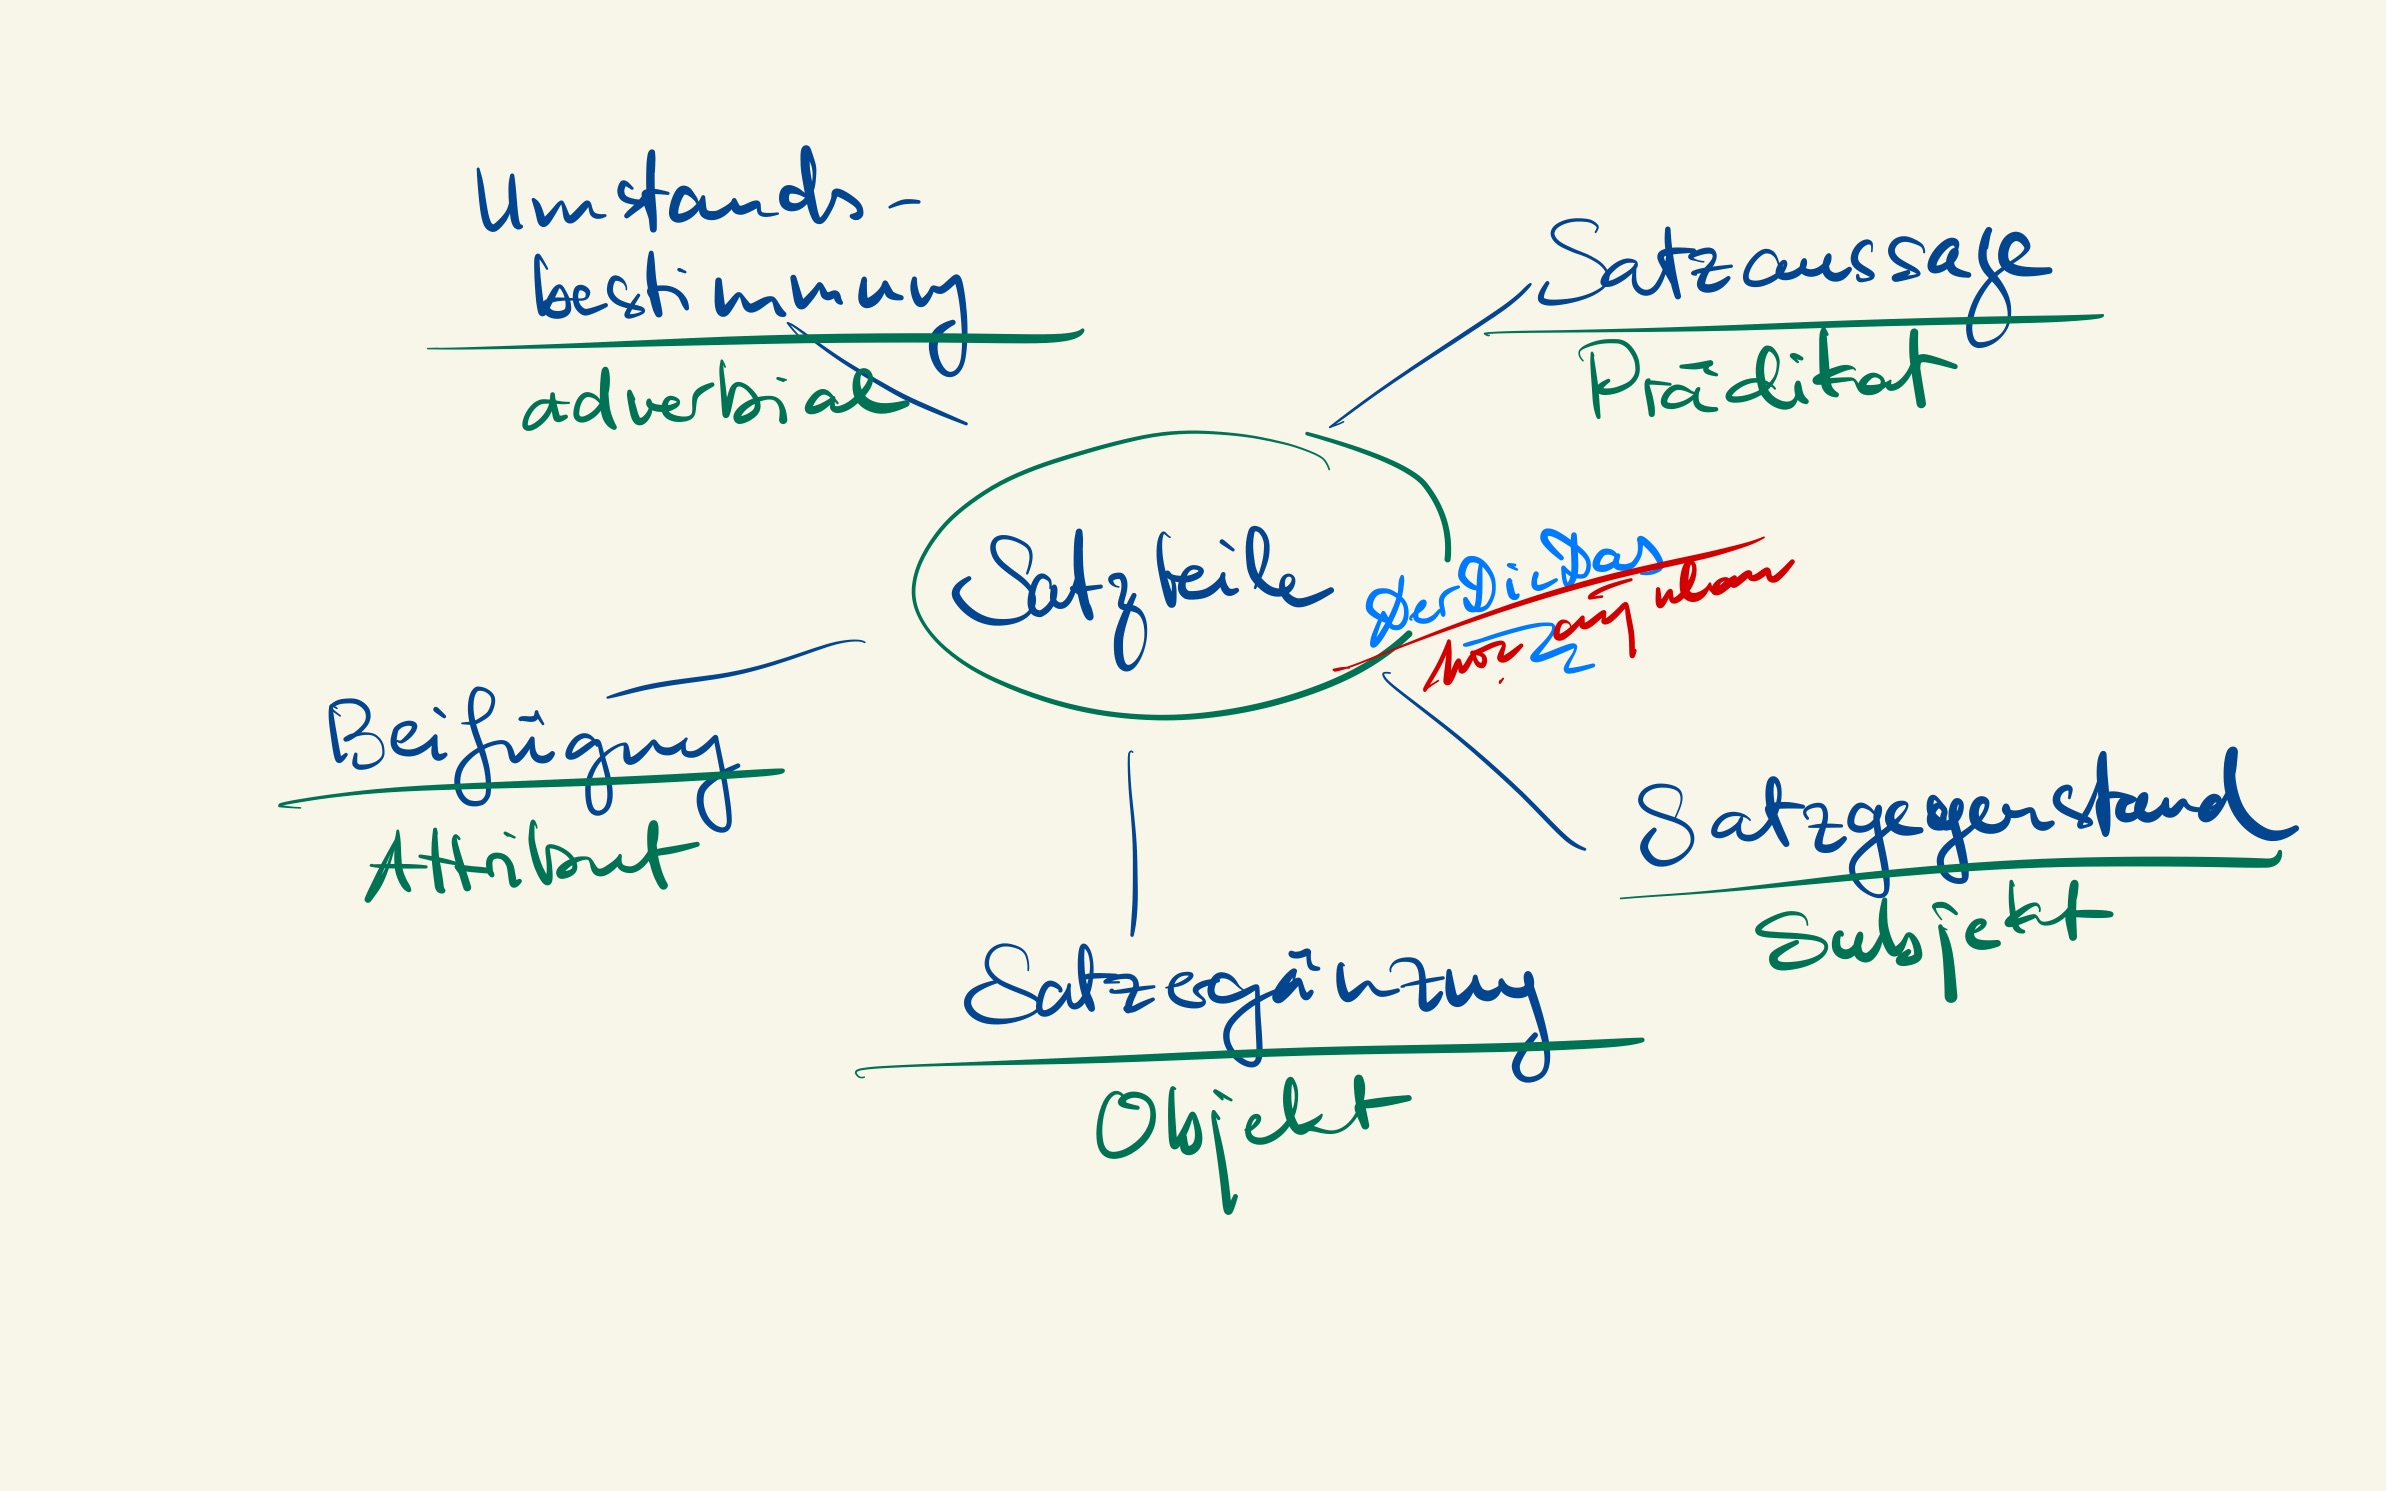 Umstands-
bestimmung
adverbial
Satzaussage
Prädikat
Satzteile
Beifügung
Attribut
Satzgegenstand
Subjekt
Satzergänzung
Objekt